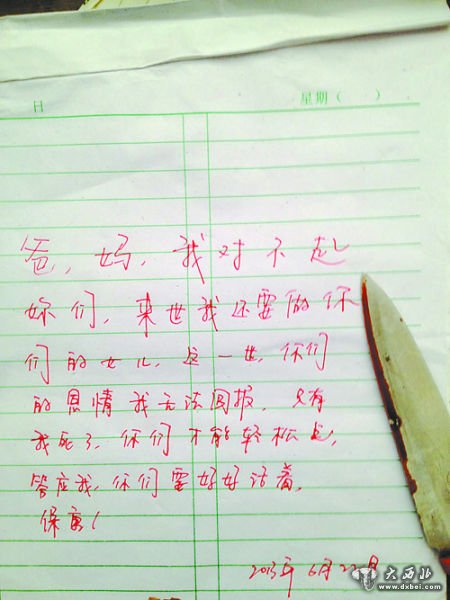 日 星期（ ）
爸，妈，我对不起
你们，来世我还要做你
们的女儿，这一世，你们
的恩情我无法回报，只有
我死了，你们才能轻松点，
答应我，你们要好好活着，
保重！
2013年6月22日
大西北
www.dxbei.com